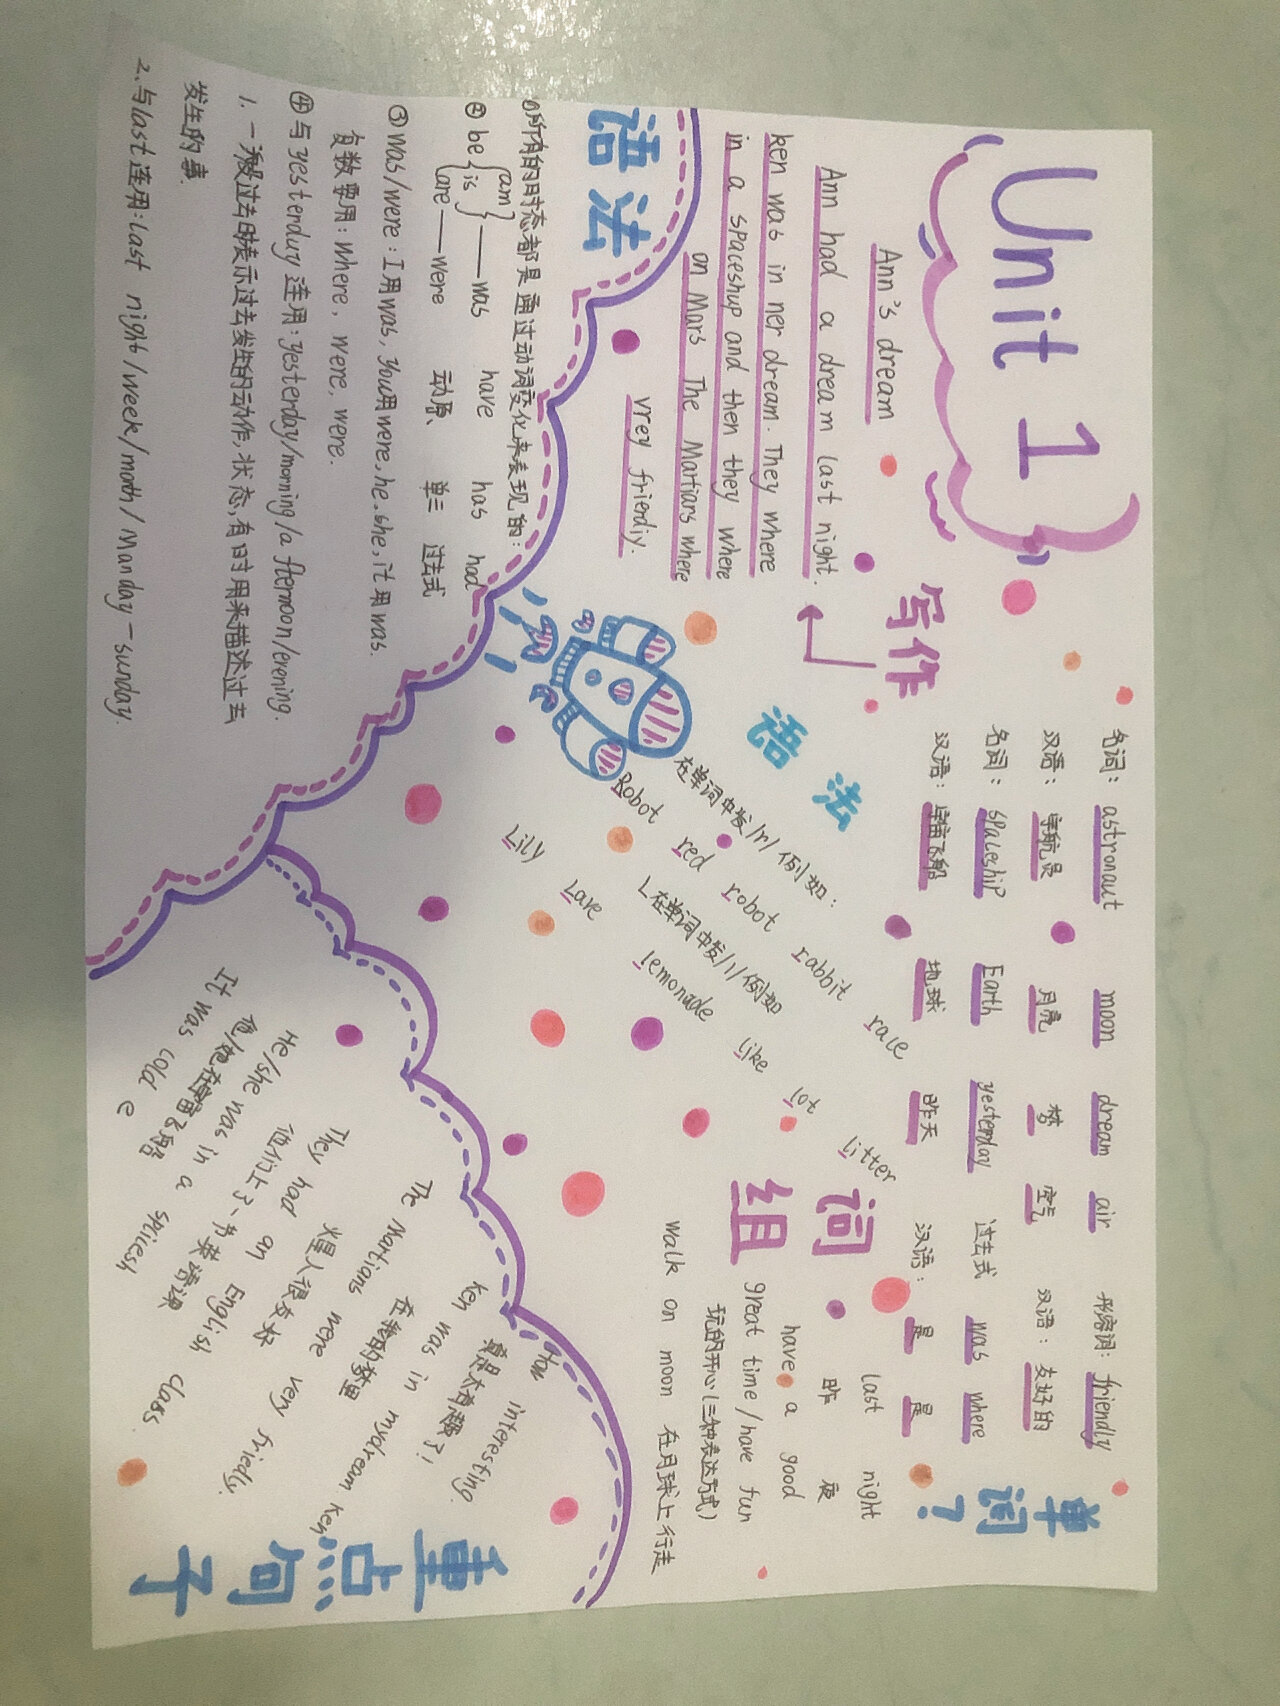 Unit 1
写作
Ann's dream
Ann had a dream last night.
ken was in ner dream. They where
in a spaceshup and then they where
on Mars The Martiars where
vrey friendiy.
单词?
名词: astronaut moon dream air 形容词: friendly
汉语: 宇航员 月亮 梦 空气 汉语: 友好的
名词: spaceship Earth yesterday 过去式 was where
汉语: 宇宙飞船 地球 昨天 汉语: 是 是
语法
在单词中发/r/例如:
Robot red robot rabbit race
L在单词中发/l/例如
Lily Lave lemonade like lot litter
组词
last night
昨 夜
have a good
great time/have fun
玩的开心(三种表达方式)
walk on moon 在月球上行走
语法
①所有的时态都是通过动词变化来表现的:
② be { am is } — was have has had
are — were 动原、 单三 过去式
③ was/were: I用was, you用were, he, she, it 用was.
复数要用: where, were, were.
④与yesterduy连用: yesterday/morning/a fternoon/erening.
1. 一般过去时表示过去发生的动作,状态,有时用来描述过去
发生的事.
2. 与last连用: last night/week/moth/Manday-sunday.
重点句子
How interesting.
真是太有趣了!
ken was in mydream ken
在我的梦里
The Martians were very friedly.
火星人很友好
They had an English class
他们上了一节英语课
He/she was in a splcesh
It was cold e